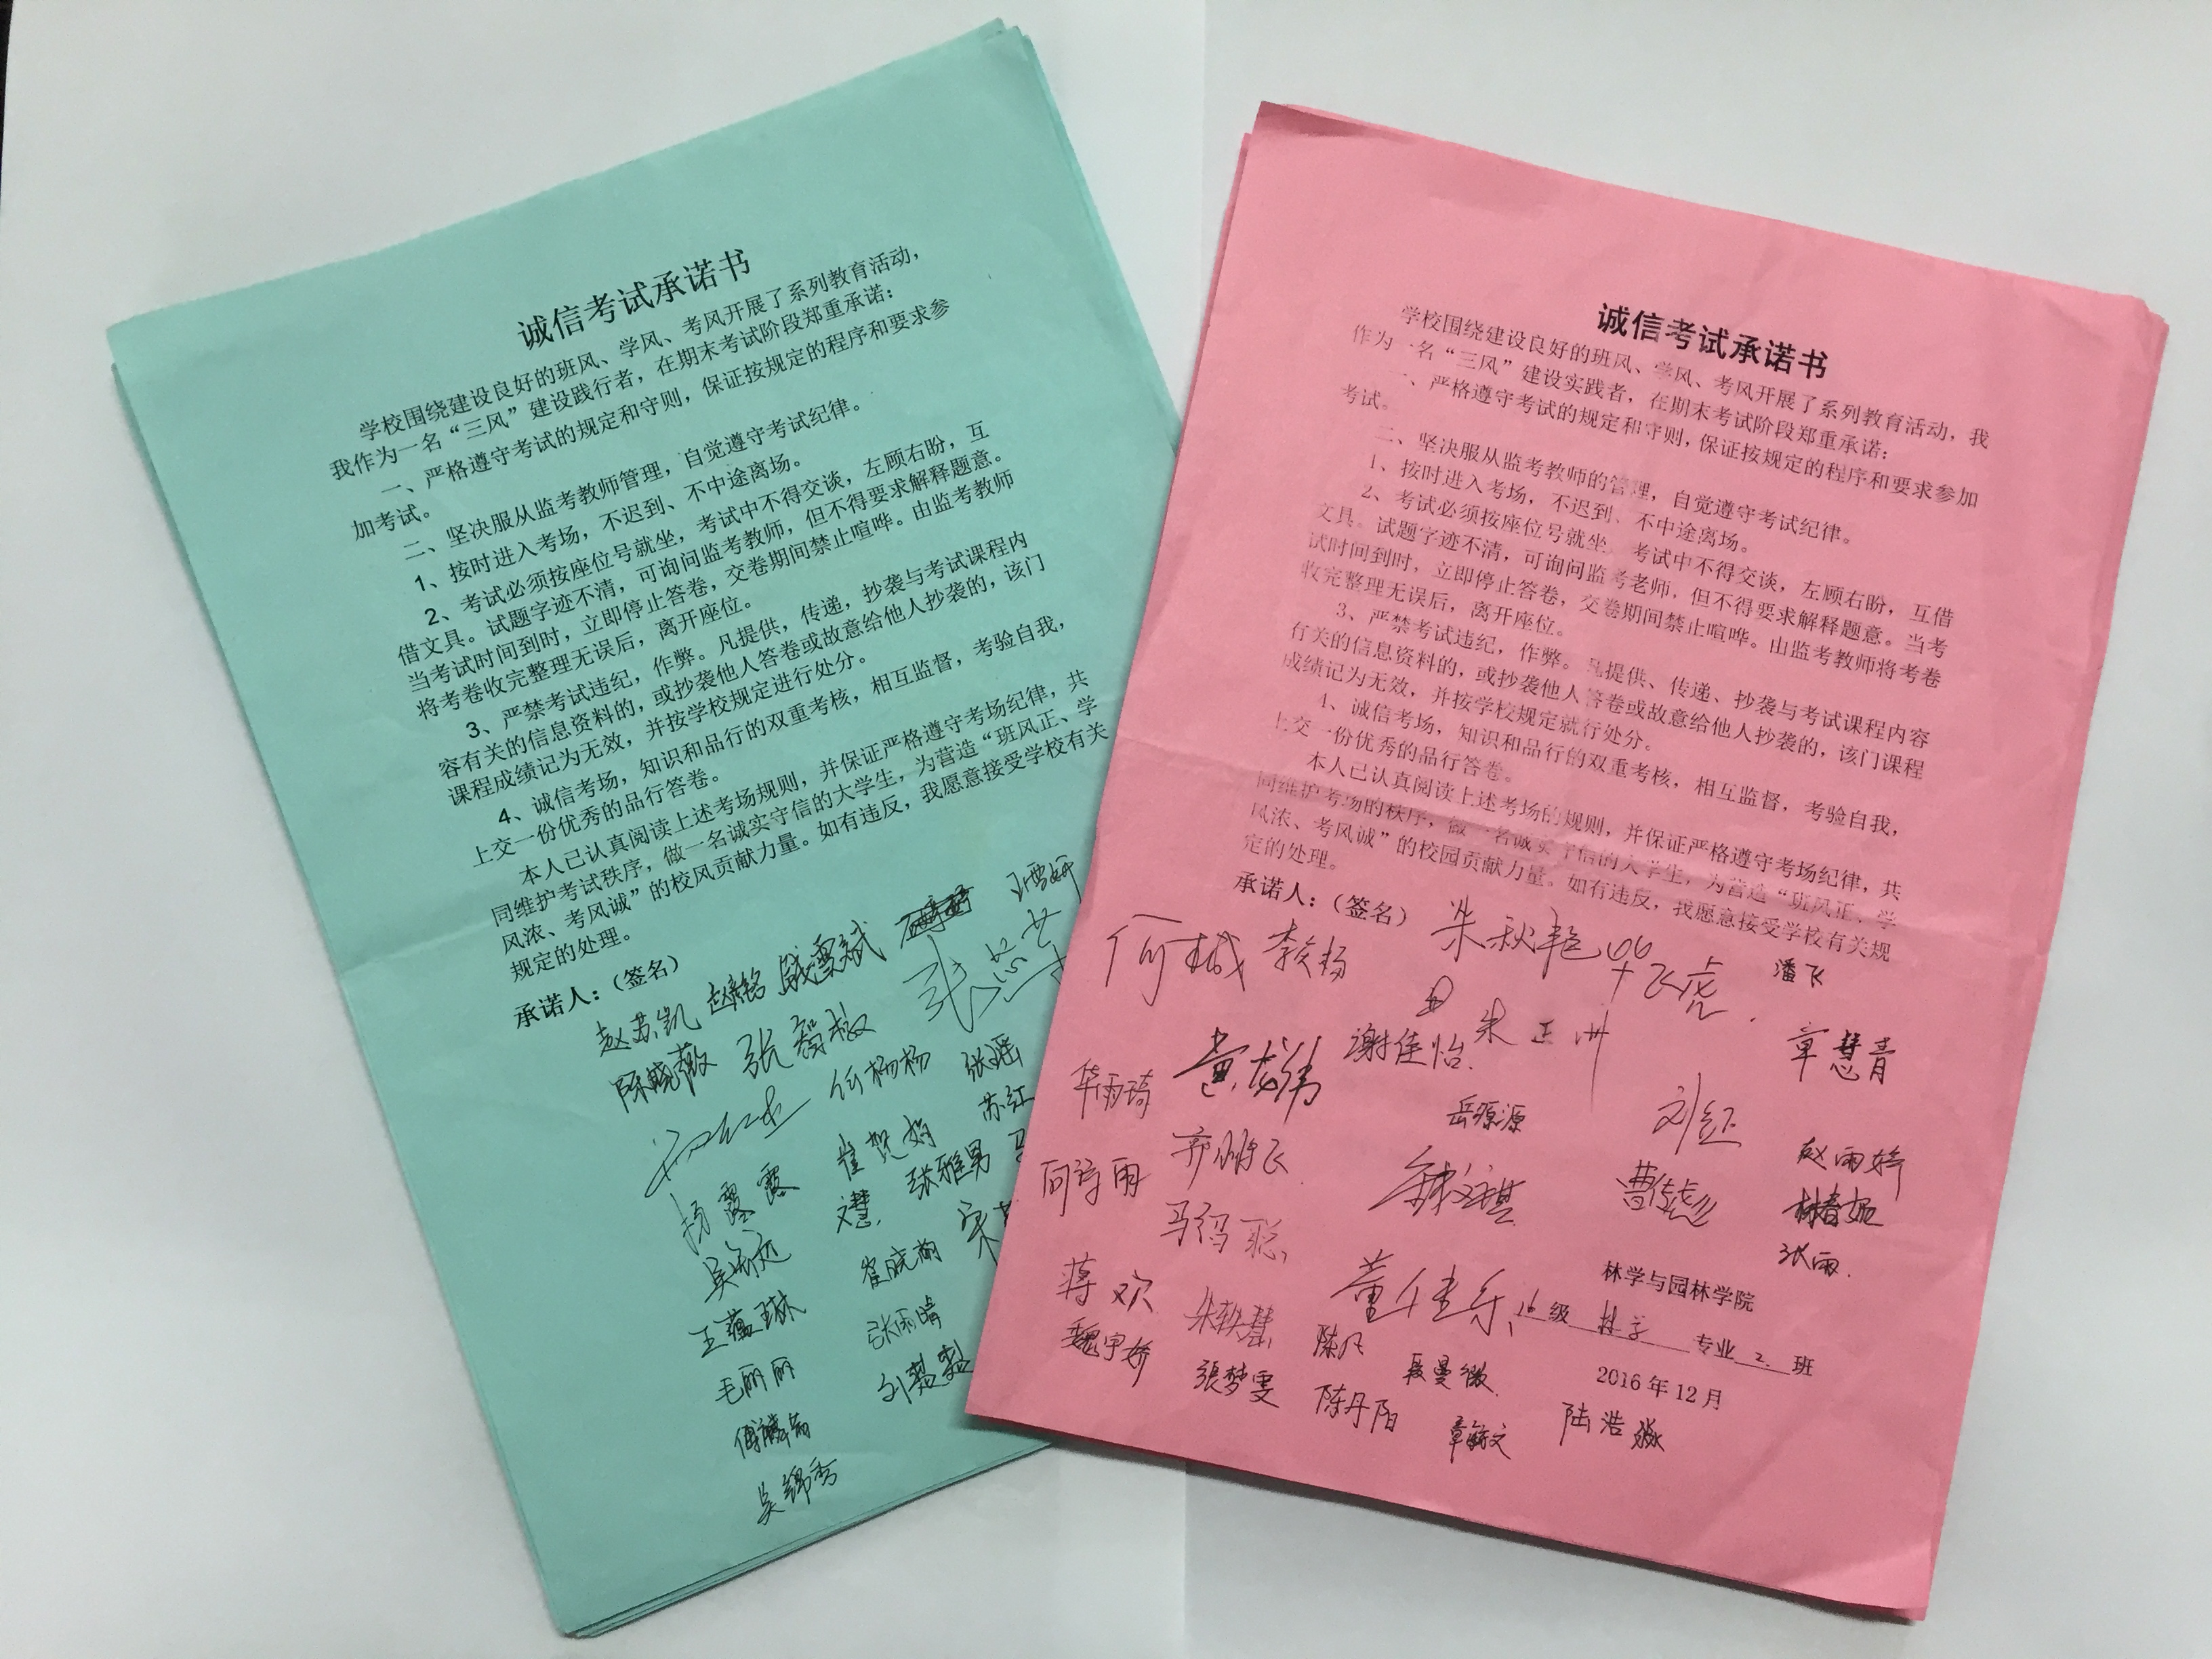 诚信考试承诺书
学校围绕建设良好的班风、学风、考风开展了系列教育活动，
我作为一名“三风”建设践行者，在期末考试阶段郑重承诺：
一、严格遵守考试的规定和守则，保证按规定的程序和要求参
加考试。
二、坚决服从监考教师管理，自觉遵守考试纪律。
1、按时进入考场，不迟到、不中途离场。
2、考试必须按座位号就坐，考试中不得交谈，左顾右盼，互
借文具。试题字迹不清，可询问监考教师，但不得要求解释题意。
当考试时间到时，立即停止答卷，交卷期间禁止喧哗。由监考教师
将考卷收完整理无误后，离开座位。
3、严禁考试违纪，作弊。凡提供，传递，抄袭与考试课程内
容有关的信息资料的，或抄袭他人答卷或故意给他人抄袭的，该门
课程成绩记为无效，并按学校规定进行处分。
4、诚信考场，知识和品行的双重考核，相互监督，考验自我，
上交一份优秀的品行答卷。
本人已认真阅读上述考场规则，并保证严格遵守考场纪律，共
同维护考试秩序，做一名诚实守信的大学生，为营造“班风正、学
风浓、考风诚”的校风贡献力量。如有违反，我愿意接受学校有关
规定的处理。
承诺人：（签名）
赵苏凯
陈晓薇 张
任杨杨 张瑶
苏红
杨露露 崔贺娟
文慧 张雅男
王蕴琳 崔晓茵
毛丽丽 张雨晴
吴锦秀
诚信考试承诺书
学校围绕建设良好的班风、学风、考风开展了系列教育活动，我
作为一名“三风”建设实践者，在期末考试阶段郑重承诺：
一、严格遵守考试的规定和守则，保证按规定的程序和要求参加
考试。
二、坚决服从监考教师的管理，自觉遵守考试纪律。
1、按时进入考场，不迟到、不中途离场。
2、考试必须按座位号就坐，考试中不得交谈，左顾右盼，互借
文具。试题字迹不清，可询问监考老师，但不得要求解释题意。当考
试时间到时，立即停止答卷，交卷期间禁止喧哗。由监考教师将考卷
收完整理无误后，离开座位。
3、严禁考试违纪，作弊。凡提供、传递、抄袭与考试课程内容
有关的信息资料的，或抄袭他人答卷或故意给他人抄袭的，该门课程
成绩记为无效，并按学校规定就行处分。
4、诚信考场，知识和品行的双重考核，相互监督，考验自我，
上交一份优秀的品行答卷。
本人已认真阅读上述考场的规则，并保证严格遵守考场纪律，共
同维护考场的秩序，做一名诚实守信的大学生，为营造“班风正、学
风浓、考风诚”的校园贡献力量。如有违反，我愿意接受学校有关规
定的处理。
承诺人：（签名） 朱秋艳 潘飞
何械 李焱杨
谢佳怡 朱正洲 章慧青
华雨琦 黄龙纬
岳源源 刘钰 赵雨婷
何诗雨
马得聪 林春妮
张雨
林学与园林学院
蒋欢 朱轶慧 董佳乐 16级 林学 专业 2 班
魏宇娇 張梦雯 陈凡 段曼微
2016年12月
陈丹阳 章毓文 陆浩淼